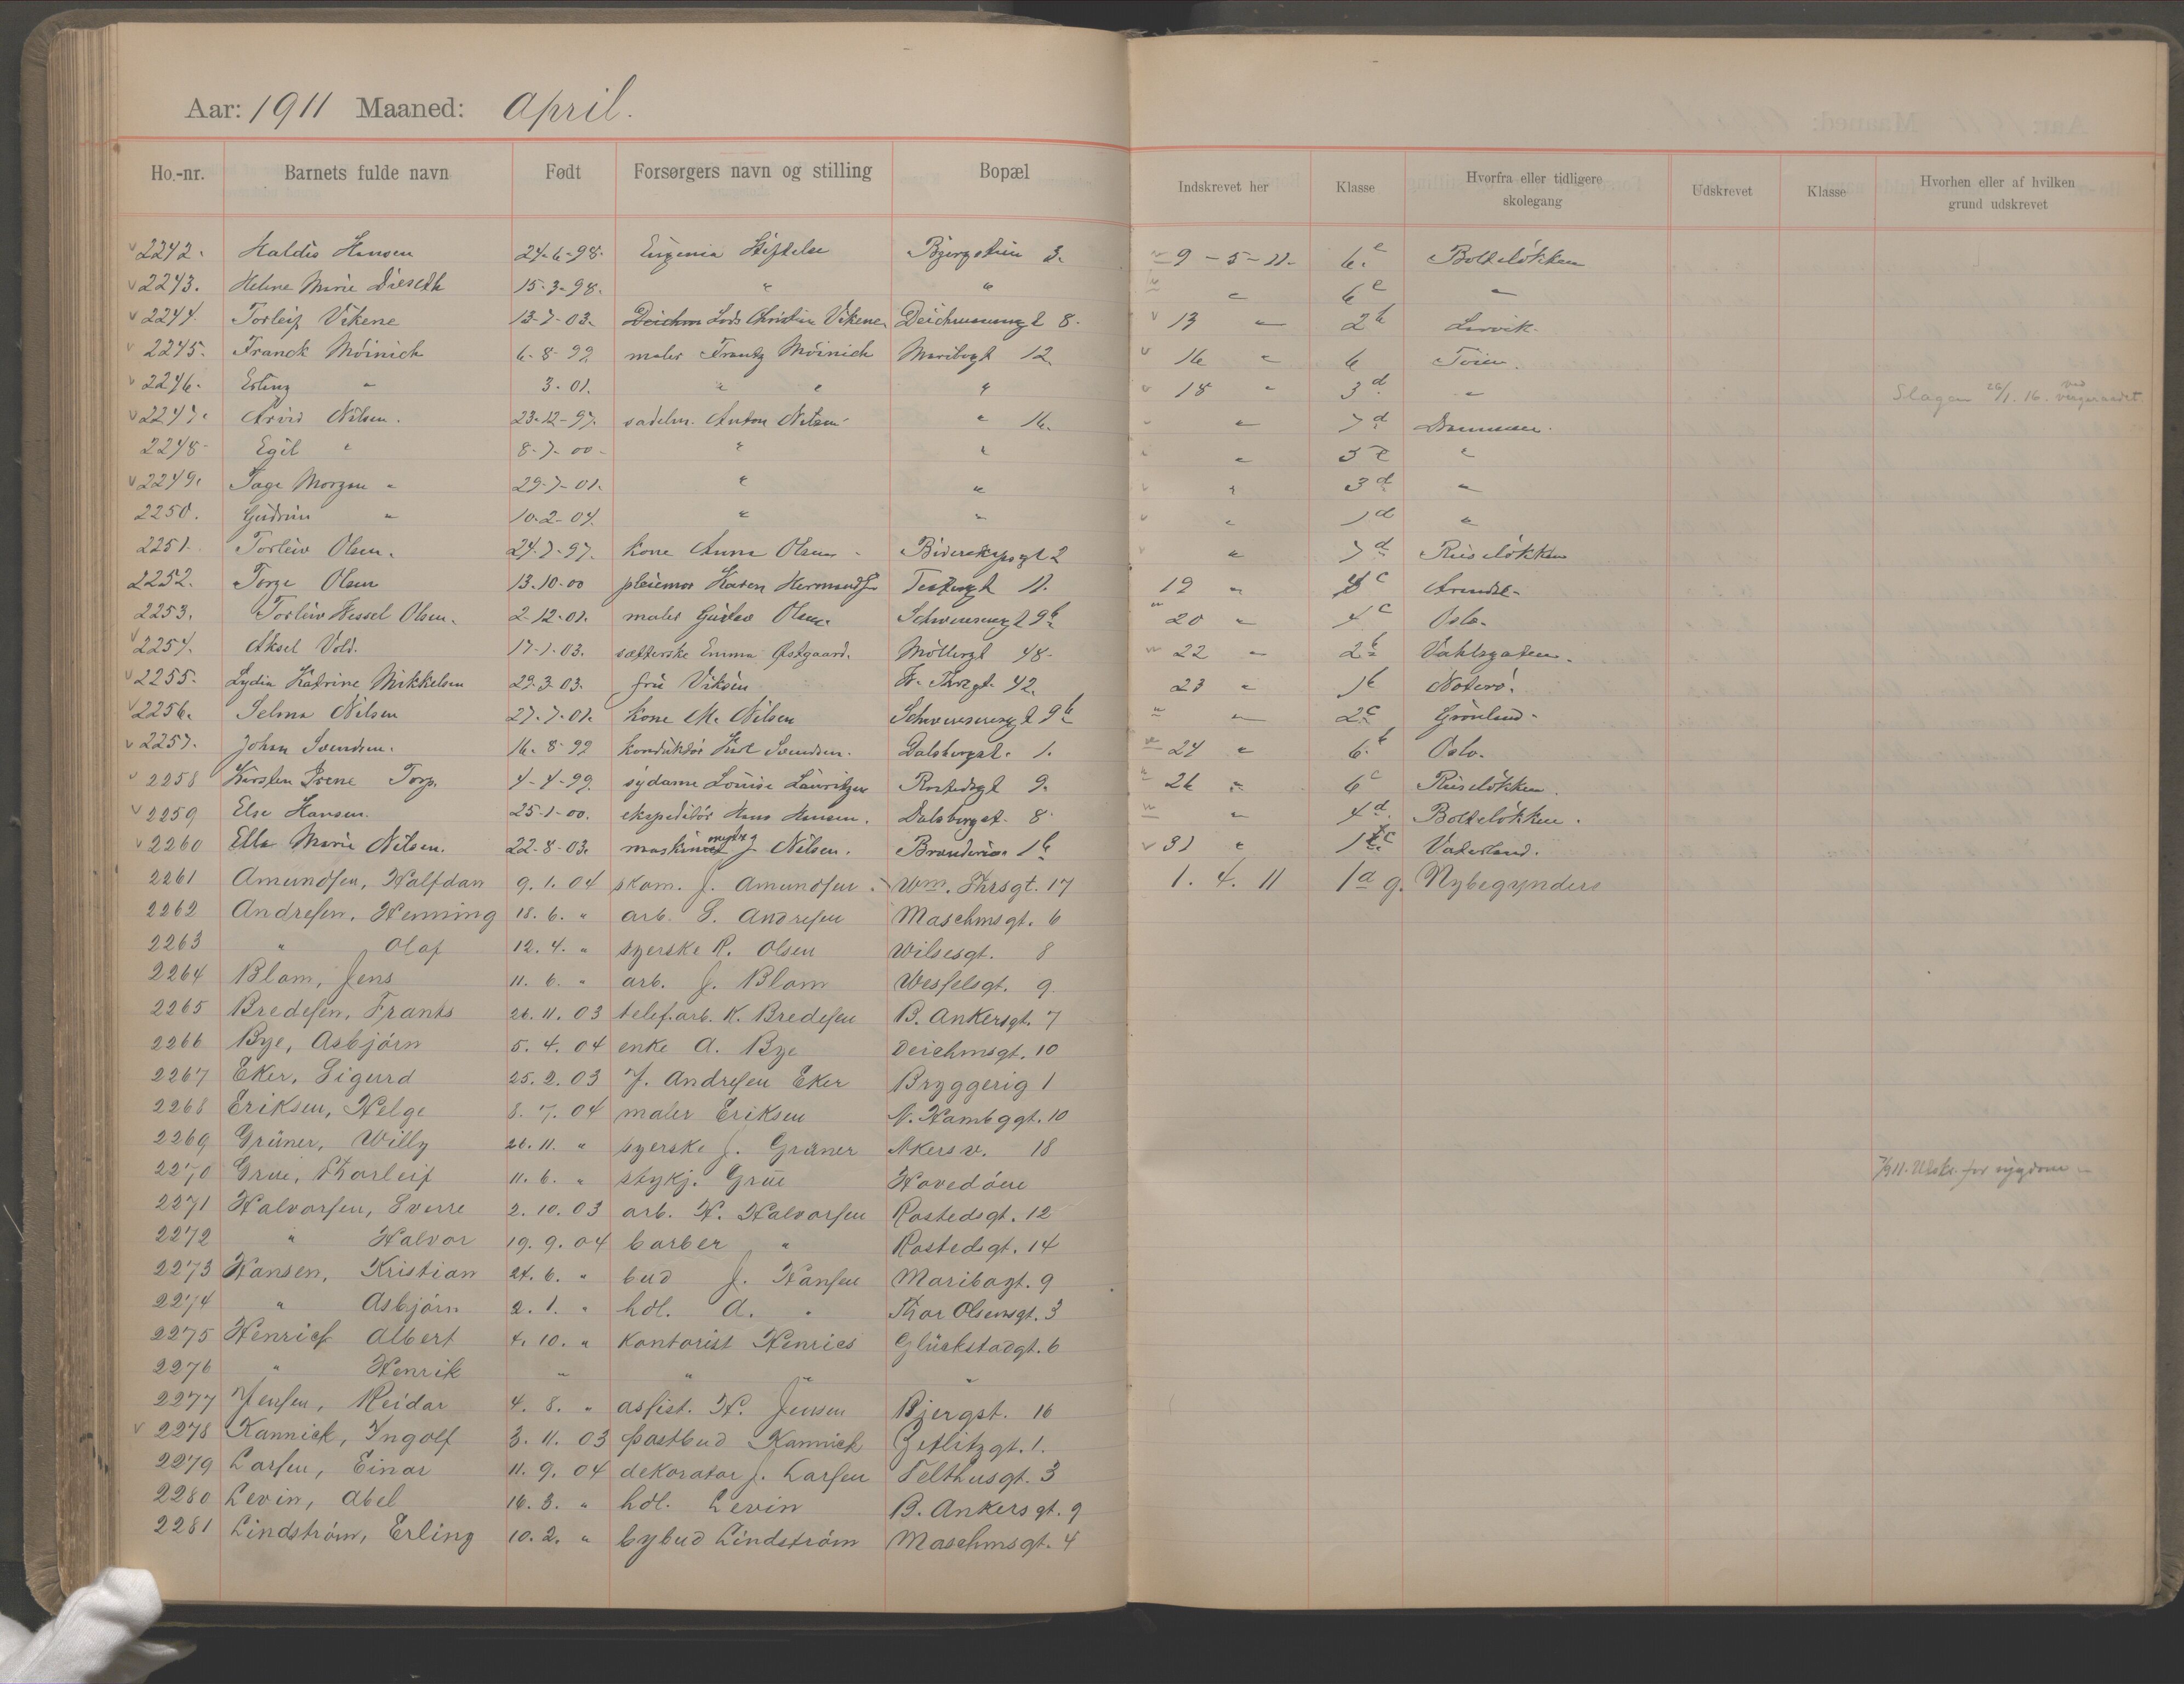 Aar: 1911 Maaned: April.
Ho.-nr. Barnets fulde navn Født Forsørgers navn og stilling Bopæl Indskrevet her Klasse Hvorfra eller tidligere skolegang Udskrevet Klasse Hvorhen eller af hvilken grund udskrevet
2242. Haldis Hansen 24-6-98. Eugenia Stiftelse Bjergstien 3. 9-5-11. 6e Bolteløkken
2243. Helene Marie 15-3-98. " " " 6e "
2244. Torleif Vikene 13-7-03. Lods Christian Vikene Deichmansgt 8. 13 " 2b Larvik.
2245. Franck Möinich 6-8-99. maler Frantz Möinich Maribogt 12. 16 " 6 Töien.
2246. Erling " 3-01. " " " 18 " 3d " Slagen 26/1. 16. ved vergeraadet
2247. Arvid Nilsen. 23-12-97. sadelm. Anton Nilsen " 16. " 7d Drammen.
2248. Egil " 8-7-00 " " " 3 "
2249. Tage Morgan " 29-7-01. " " " 3d "
2250. Gudrun " 10-2-04. " " " 1d "
2251. Torleiv Olsen. 24-7-97. kone Anna Olsen 2 " 7d Ruseløkken
2252. Torge Olsen 13-10-00 pleiemor Karen 11. 19 " c Arendal
2253. Torleiv Wessel Olsen. 2-12-01. maler Gustav Olsen Schwensensgt 9b 20 " 4c Oslo.
2254. Aksel Vold. 17-1-03. sætterske Emma Østgaard. Möllergt 48. 22 " 2b Vahlsgaten.
2255. Lydia Katrine Mikkelsen 29-3-03. fru Viksèn 42. 23 " 1b Noterö.
2256. Selma Nilsen 27-7-01. kone M. Nilsen Schwensensgt 9b " " 2c Grønland.
2257. Johan Svendsen. 16-8-99 konduktör Svendsen. Dalsbergst. 1. 24 " 6b Oslo.
2258 Kirsten Irene Torp. 4-4-99. sydame Louise Lauritzen Rostedsgt 9. 26 " 6c Ruseløkken.
2259 Else Hansen. 25-1-00. ekspeditör Hans Hansen. Dalsbergst. 8. " " 4d Bolteløkken.
2260 Ella Marie Nilsen. 22-8-03. J Nilsen. 1b 31 " 1c Vaterland.
2261 Amundsen, Halfdan 9.1.04 skom. J. Amundsen Wm. Thrsgt. 17 1.4.11 1a g. Nybegyndere
2262 Andresen, Henning 18.6. " arb. S. Andresen Maschmsgt. 6
2263 " Olaf 12.4. " syerske R. Olsen Wilsesgt. 8
2264 Blom, Jens 11.6. " arb. J. Blom Wesselsgt. 9
2265 Bredesen, Frants 26.11.03 telef.arb. K. Bredesen B. Ankersgt. 7
2266 Bye, Asbjörn 5.4.04 enke A. Bye Deichmsgt. 10
2267 Eker, Sigurd 25.2.03 J. Andresen Eker Bryggerig 1
2268 Eriksen, Helge 8.7.04 maler Eriksen N. Hambggt. 10
2269 Grüner, Willy 26.11. " syerske J. Grüner Akersv. 18
2270 Grue, Thorleif 11.6. " stykj. Grue Hovedöen Utskr. for sygdom
2271 Halvorsen, Sverre 2.10.03 arb. H. Halvorsen Rostedsgt. 12
2272 " Halvor 19.9.04 barber " Rostedsgt. 14
2273 Hansen, Kristian 24.6. " bud J. Hansen Maribogt. 9
2274 " Asbjörn 2.1. " hdl. A. " Thor Olsensgt. 3
2275 Henrics Albert 4.10. " Kontorist Henrics Glückstadgt. 6
2276 " Henrik " " " "
2277 Jensen, Reidar 4.8. " assist. H. Jensen Bjergst. 16
2278 Kannick, Ingolf 3.11.03 postbud Kannick Zetlitzgt. 1.
2279 Larsen, Einar 11.9.04 dekoratør J. Larsen Telthusgt. 3
2280 Levin, Abel 16.3. " hdl. Levin B. Ankersgt. 9
2281 Lindström, Erling 10.2. " bybud Lindström Maschmsgt. 4